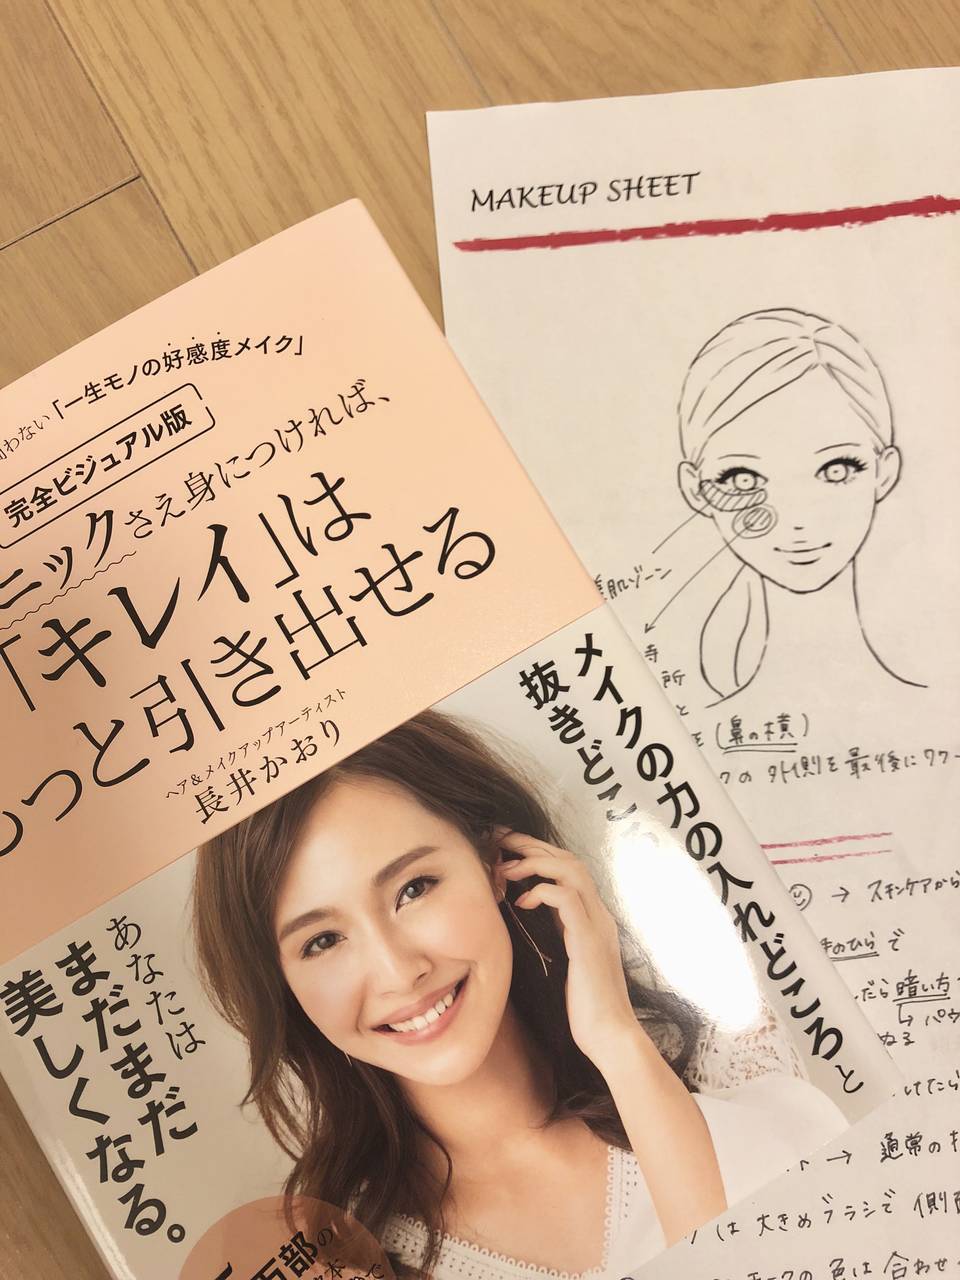 わない「一生モノの好感度メイク」
完全ビジュアル版
ニックさえ身につければ、
「キレイ」は
もっと引き出せる
ヘア&メイクアップアーティスト
長井かおり
メイクの力の入れどころと
抜きどころ
あなたは
まだまだ
美しくなる。
万部の
MAKEUP SHEET
美肌ゾーン
所
と
(鼻の横)
の外側を最後にワワー
→ スキンケアから
手のひらで
だら暗い方
↳ パウ
ぬる
けたら
→ 通常の
は大きめブラシで 側面
の色は合わせ